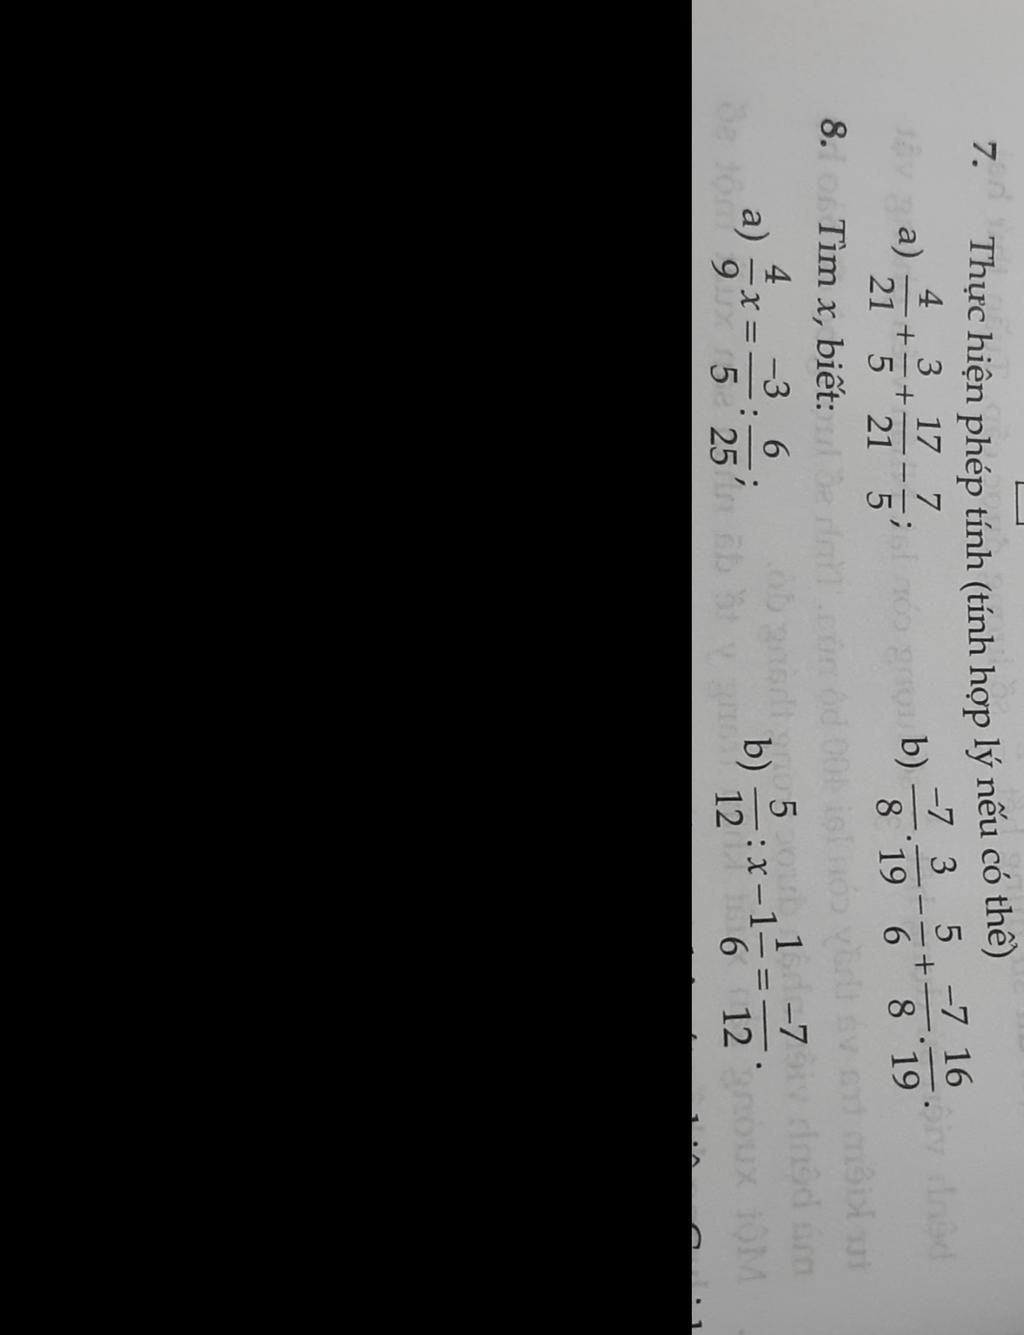 7. Thực hiện phép tính (tính hợp lý nếu có thể)
a) 4/21 + 3/5 + 17/21 − 7/5; b) −7/8 · 3/19 − 5/6 + −7/8 · 16/19.
8. Tìm x, biết:
a) 4/9 x = −3/5 : 6/25; b) 5/12 : x − 1 1/6 = −7/12.